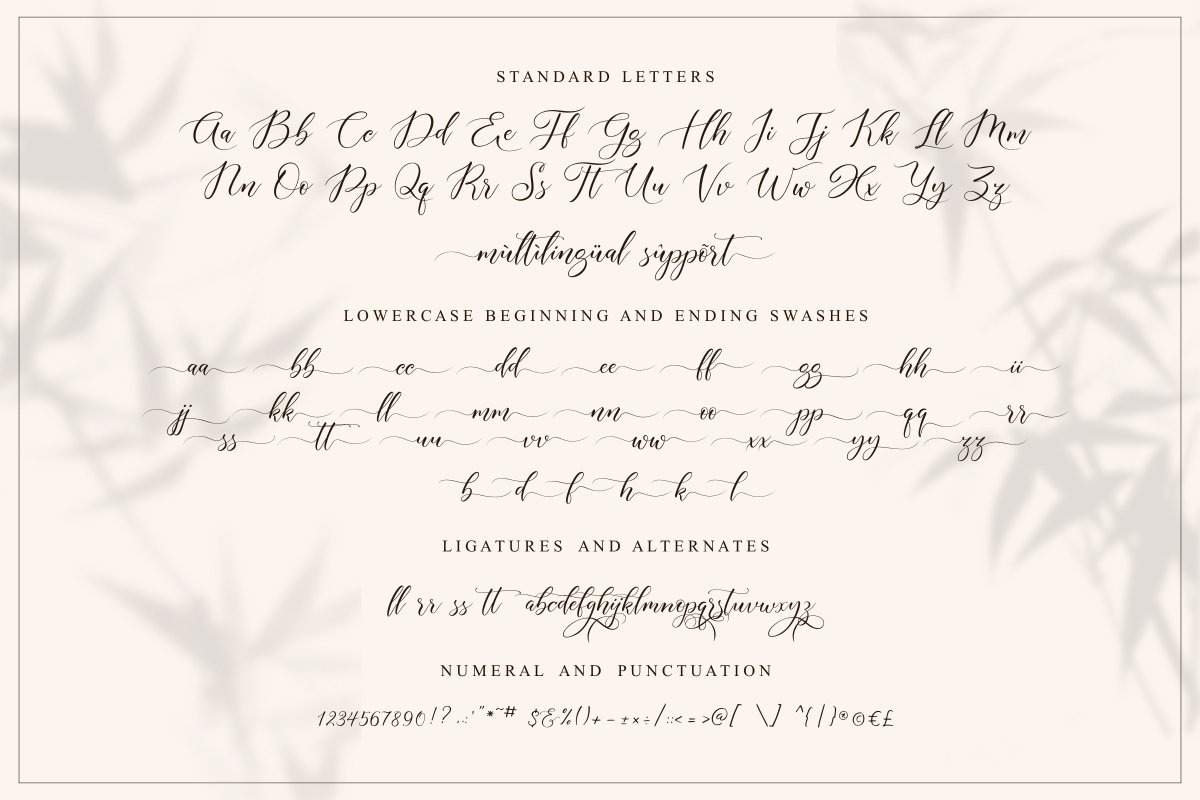 STANDARD LETTERS
Aa Bb Cc Dd Ee Ff Gg Hh Ii Jj Kk Ll Mm
Nn Oo Pp Qq Rr Ss Tt Uu Vv Ww Xx Yy Zz
mùltìlingüal sûppõrt
LOWERCASE BEGINNING AND ENDING SWASHES
aa bb cc dd ee ff gg hh ii
jj kk ll mm nn oo pp qq rr
ss tt uu vv ww xx yy zz
b d f h k l
LIGATURES AND ALTERNATES
ll rr ss tt abcdefghijklmnopqrstuvwxyz
NUMERAL AND PUNCTUATION
1234567890!?.,:;'"*~# $&%()+-±×÷/::<=>@[\]^{|}®©€£